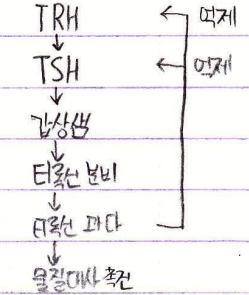 TRH ← 억제
↓
TSH ← 억제
↓
갑상샘
↓
티록신 분비
↓
티록신 과다
↓
물질대사 촉진